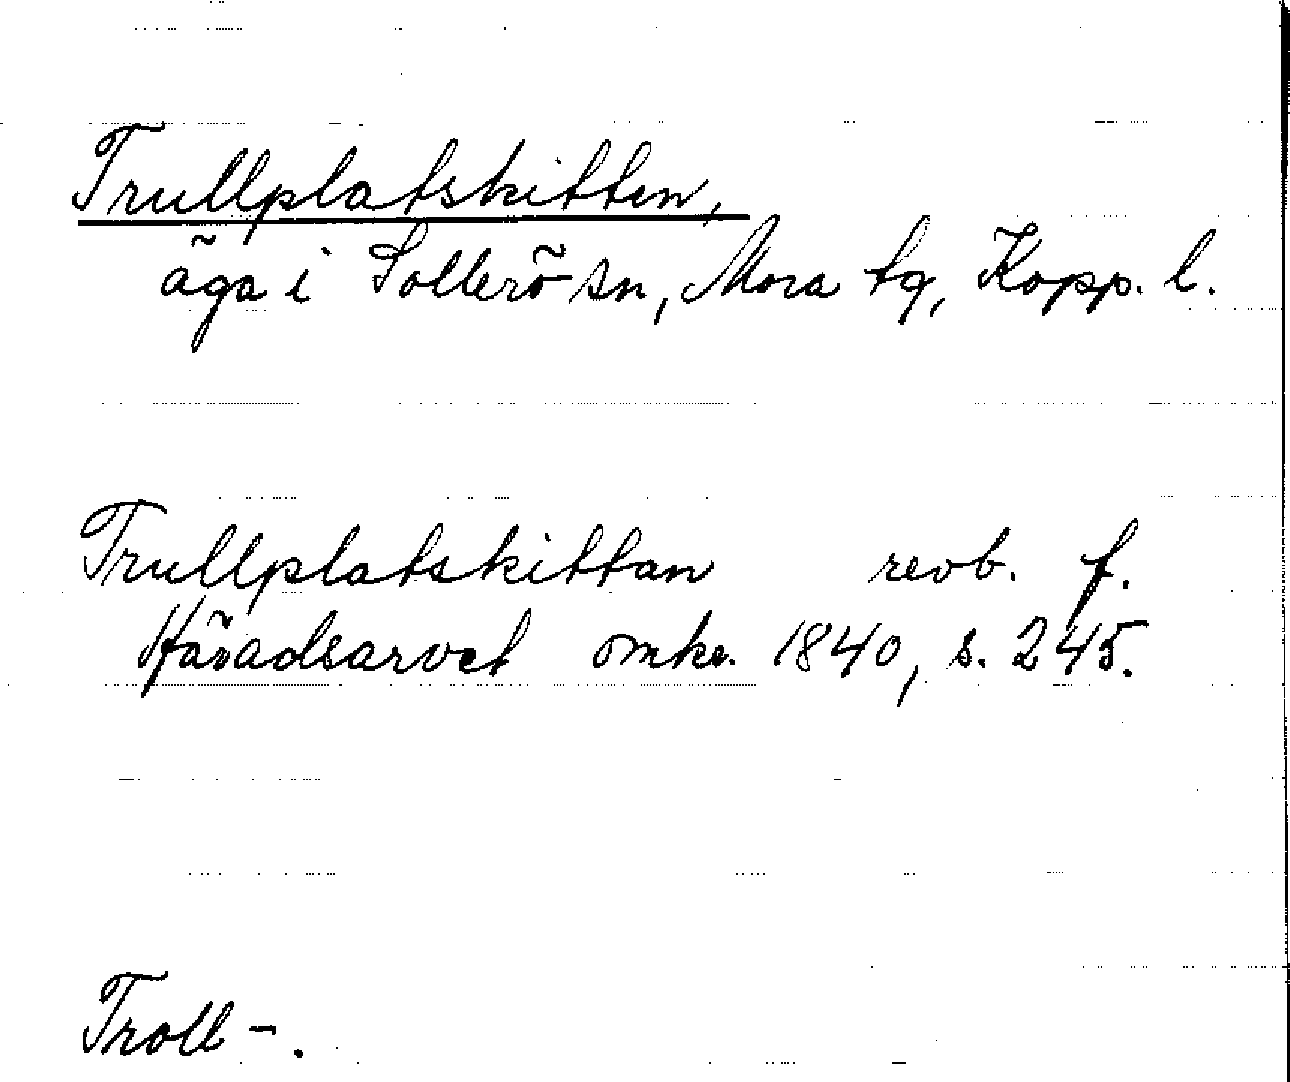 Trullplatskitten,
äga i Sollerö sn, Mora tg, Kopp. l.
Trullplatskittan revb. f.
Häradsarvet omkr. 1840, s. 245.
Troll-.